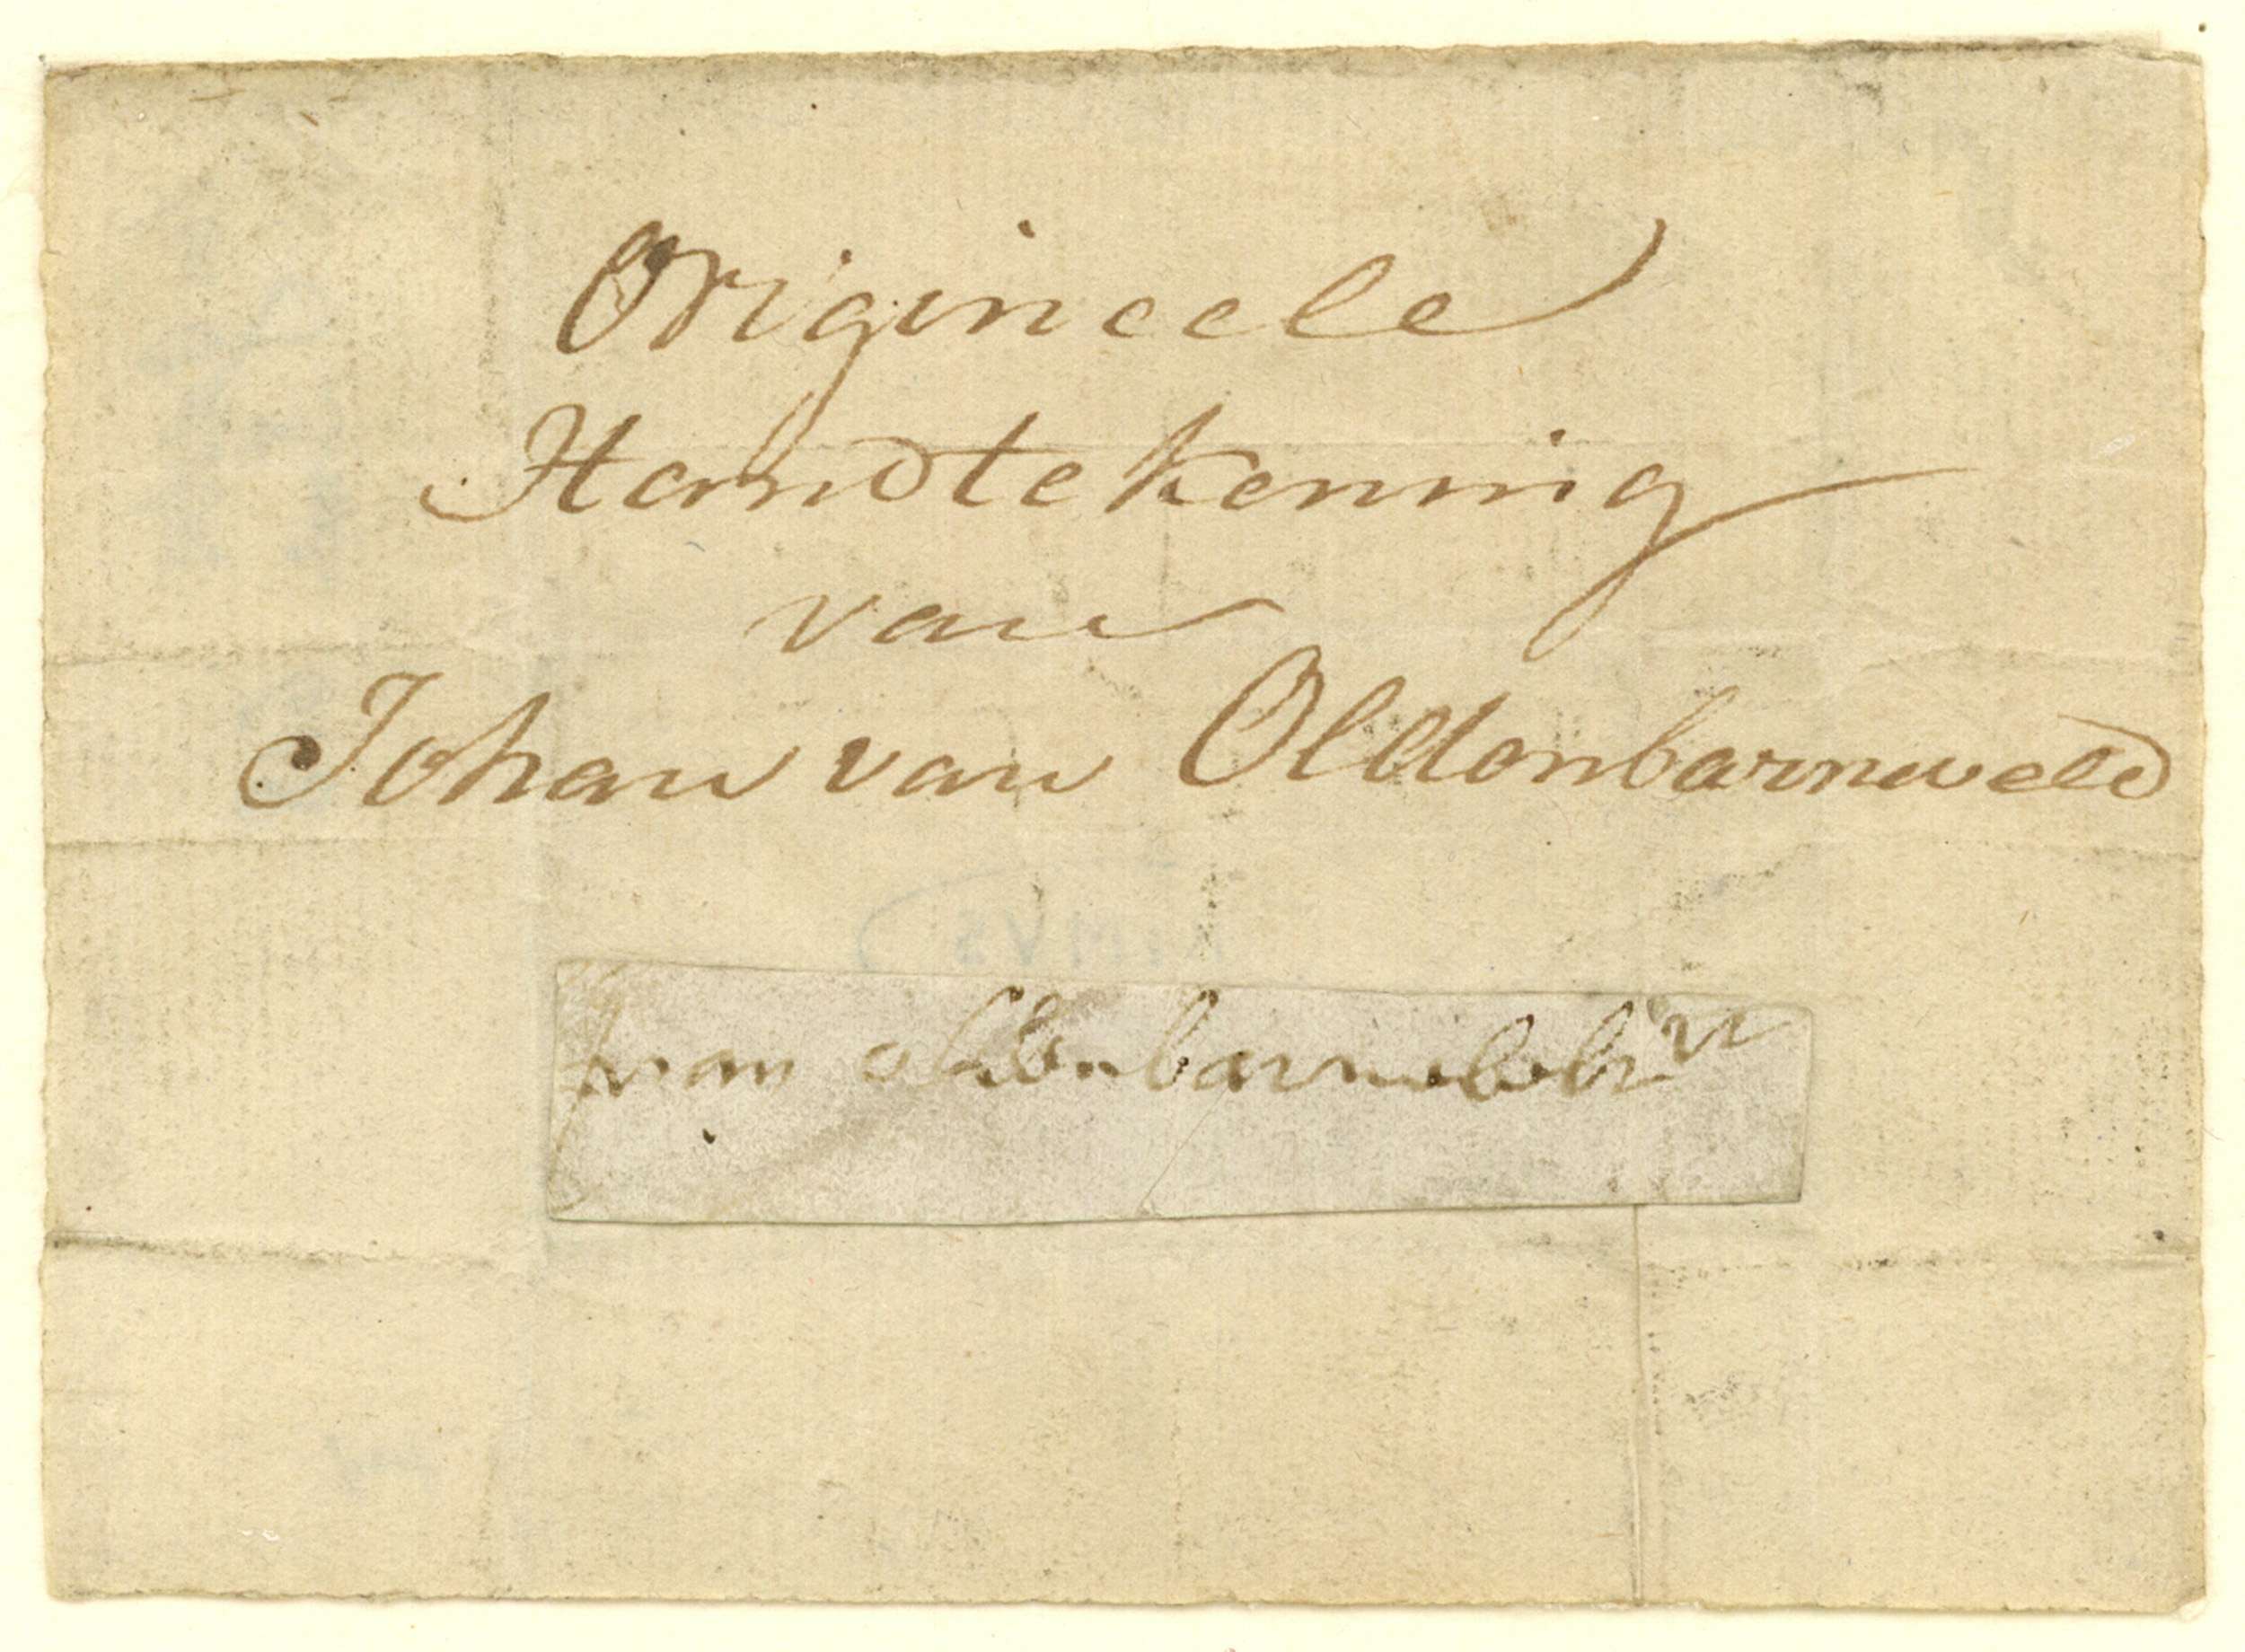 Origineele
Handtekening
van
Johan van Olldenbarneveld
van oldenbarnevelt